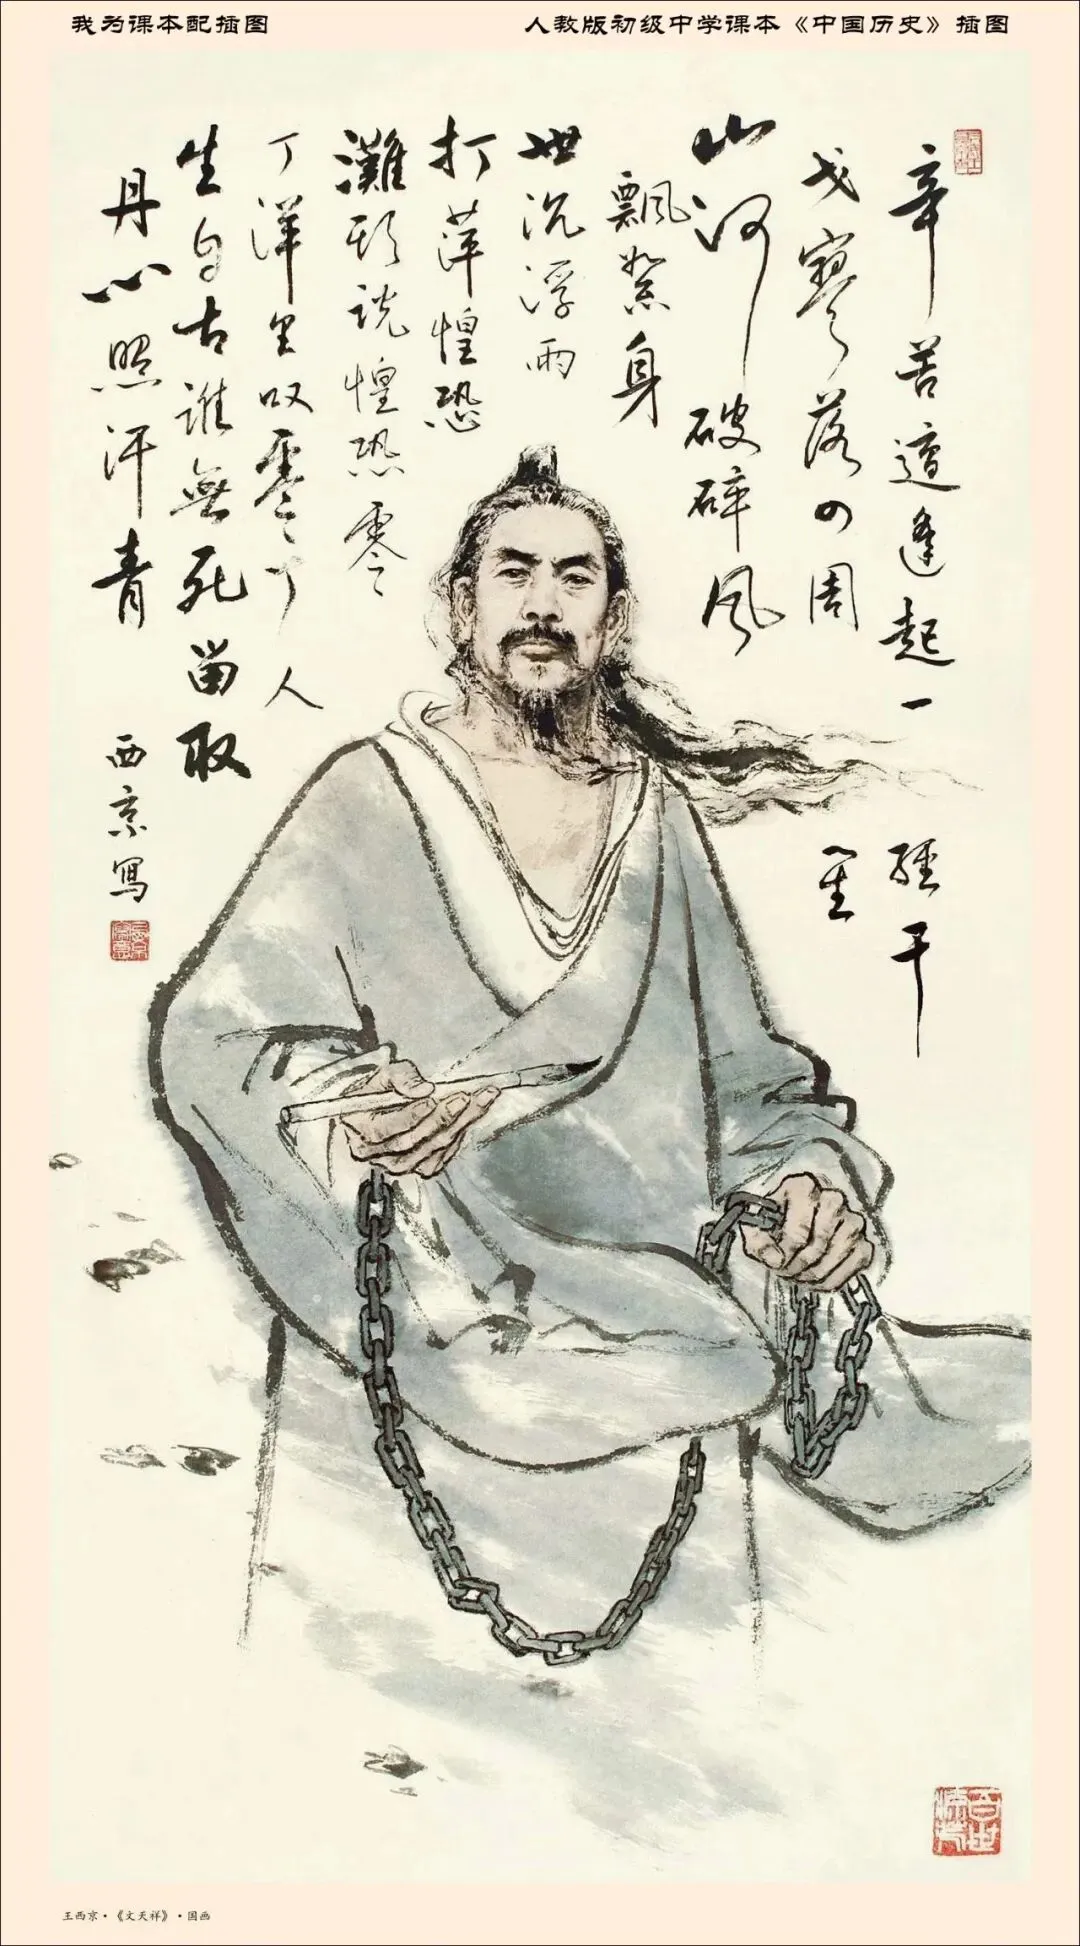 我为课本配插图
人教版初级中学课本《中国历史》插图
辛苦遭逢起一經干
戈寥落四周星
山河破碎風
飄絮身
世沉浮雨
打萍惶恐
灘頭說惶恐零
丁洋里叹零丁人
生自古誰無死留取
丹心照汗青
西京寫
百世流芳
王西京·《文天祥》·国画